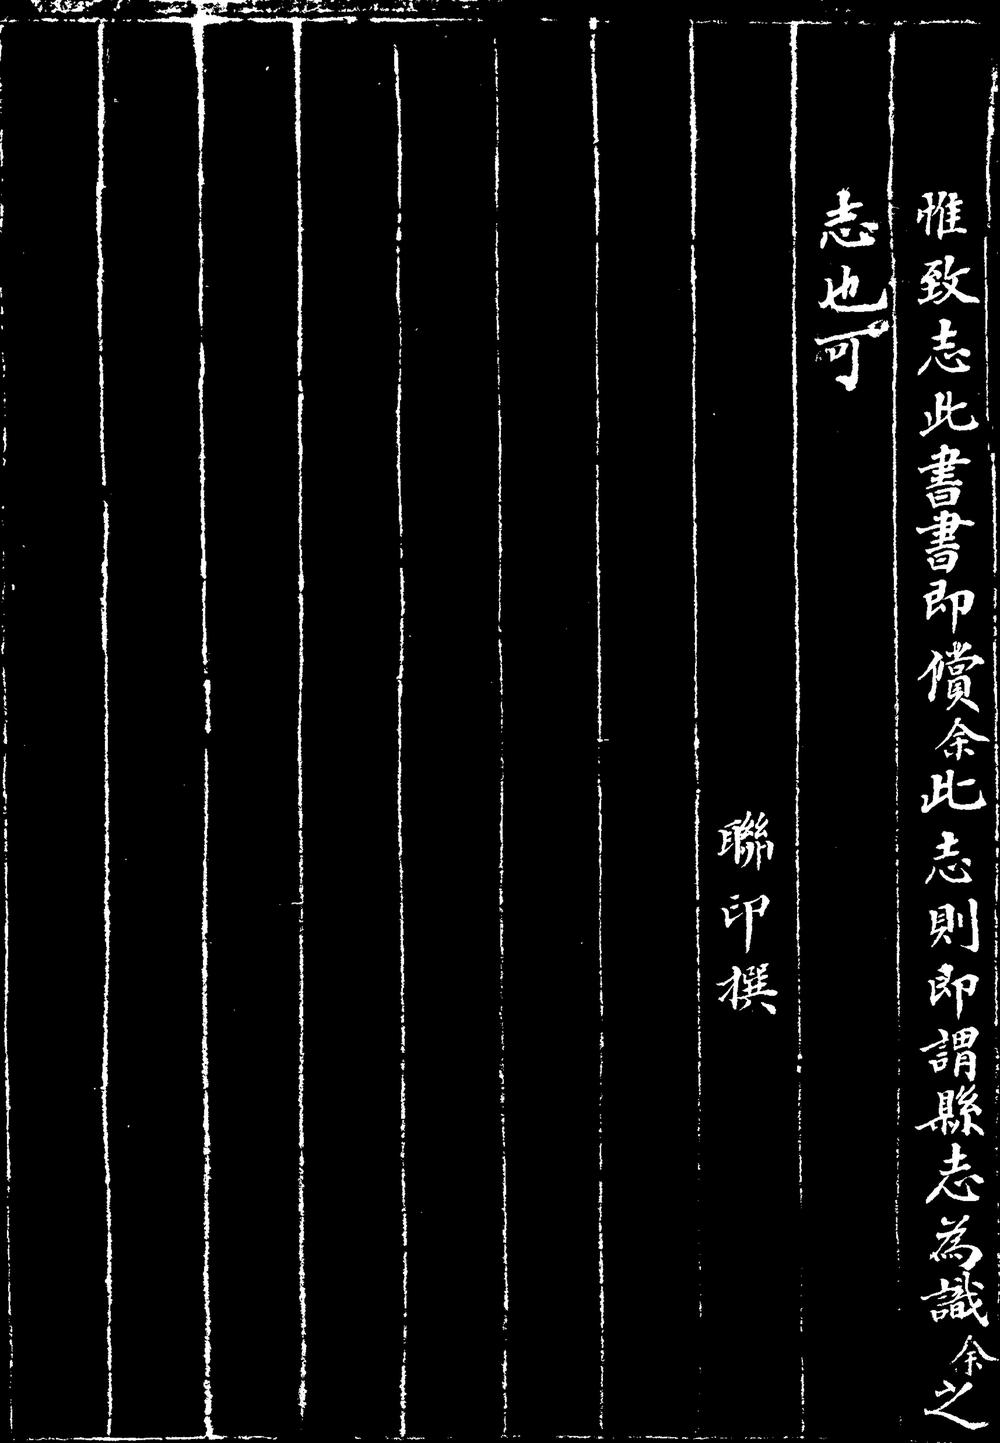 惟致志此書書即償余此志則即謂縣志為識余之
志也可
聯印撰